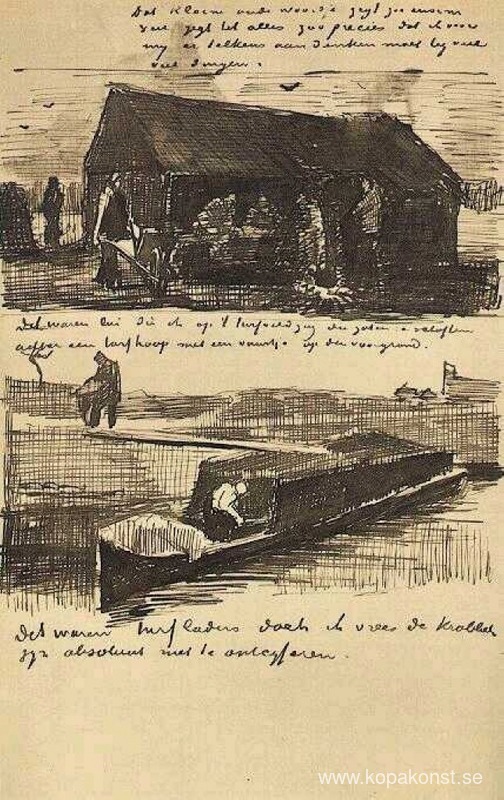 Dat kleine oude woordje zegt zoo enorm
veel zegt het alles zoo precies dat ik voor
my er telkens aan denken moet by veel
veel dingen.
Dat waren lui die ik op 't turfveld zag die zaten
achter een turfhoop met een vuurtje op den voorgrond.
Dat waren turfladers doch ik vrees de krabbels
zyn absoluut niet te ontcyferen.
www.kopakonst.se